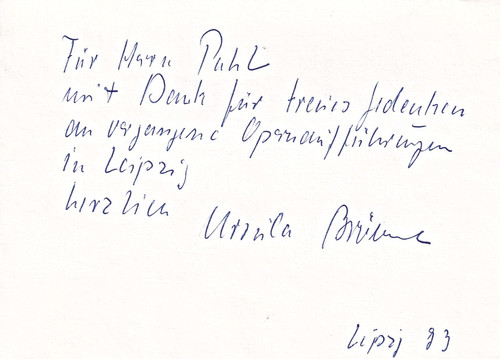 Für Herrn Puhl
mit Dank für treues Gedenken
an vergangene Opernaufführungen
in Leipzig
herzlich
Ursula Brömme
Leipzig 93